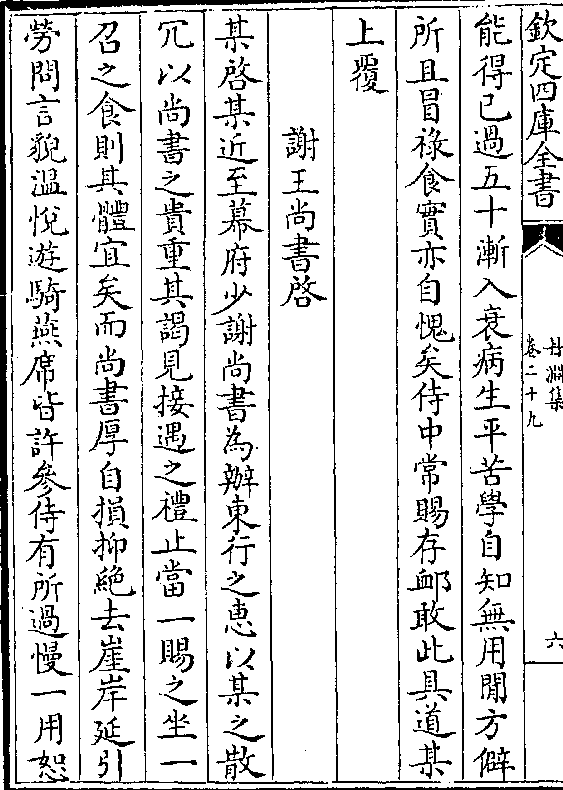 欽定四庫全書
丹淵集
卷二十九
六
能得已過五十漸入衰病生平苦學自知無用閒方僻
所且冒祿食實亦自愧矣侍中常賜存䘏敢此具道某
上覆
謝王尚書啓
某啓某近至幕府少謝尚書為辦東行之惠以某之散
冗以尚書之貴重其謁見接遇之禮止當一賜之坐一
召之食則其體宜矣而尚書厚自損抑絶去崖岸延引
勞問言貌溫悅遊騎燕席皆許參侍有所過慢一用恕